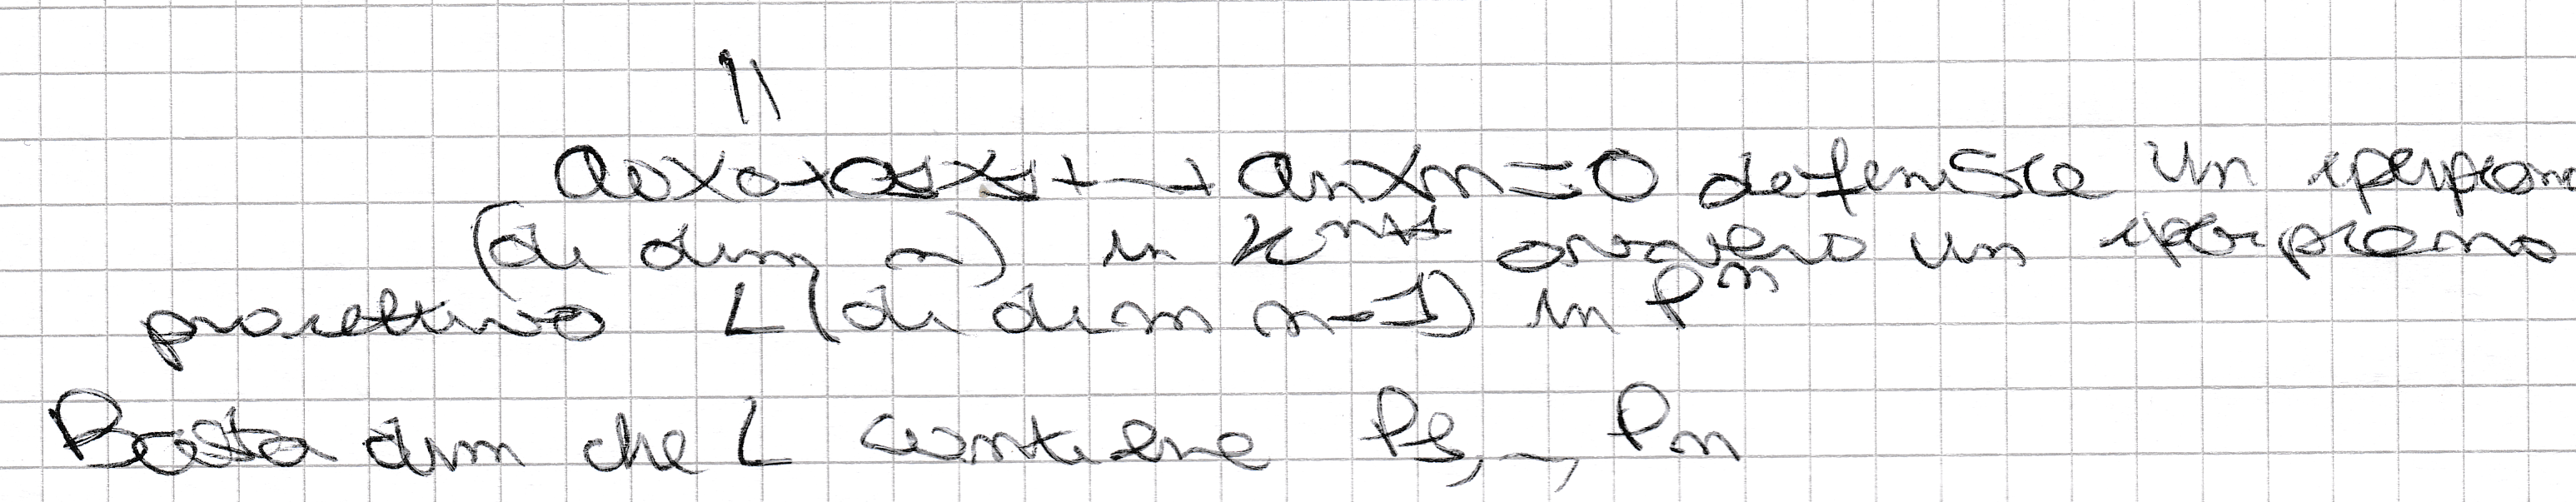 ||
a₀x₀+a₁x₁+...+ aₙxₙ=0 definisce un iperpiano
(di dim n) in Kⁿ⁺¹ ovvero un iperpiano
proiettivo L (di dim n-1) in Pⁿ
Basta dim che L contiene P₁,...,Pₙ